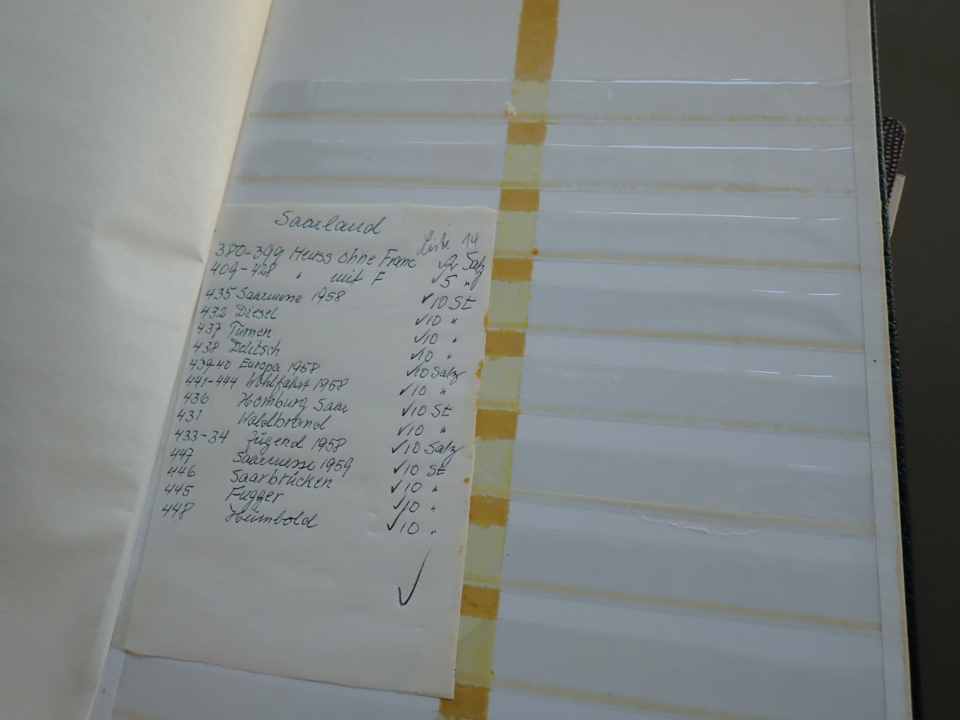 Saarland
Liste 14
380-399 Heuss ohne Franc ✓2 Satz
409-428 " mit F ✓5 "
435 Saarmesse 1958 ✓10 St
432 Diesel ✓10 "
437 Turnen ✓10 "
438 Delitsch ✓10 "
439-40 Europa 1958 ✓10 Satz
441-444 Wohlfahrt 1958 ✓10 "
436 Homburg Saar ✓10 St
431 Waldbrand ✓10 "
433-34 Jugend 1958 ✓10 Satz
447 Saarmesse 1959 ✓10 St
446 Saarbrücken ✓10 "
445 Fugger ✓10 "
448 Humbold ✓10 "
✓